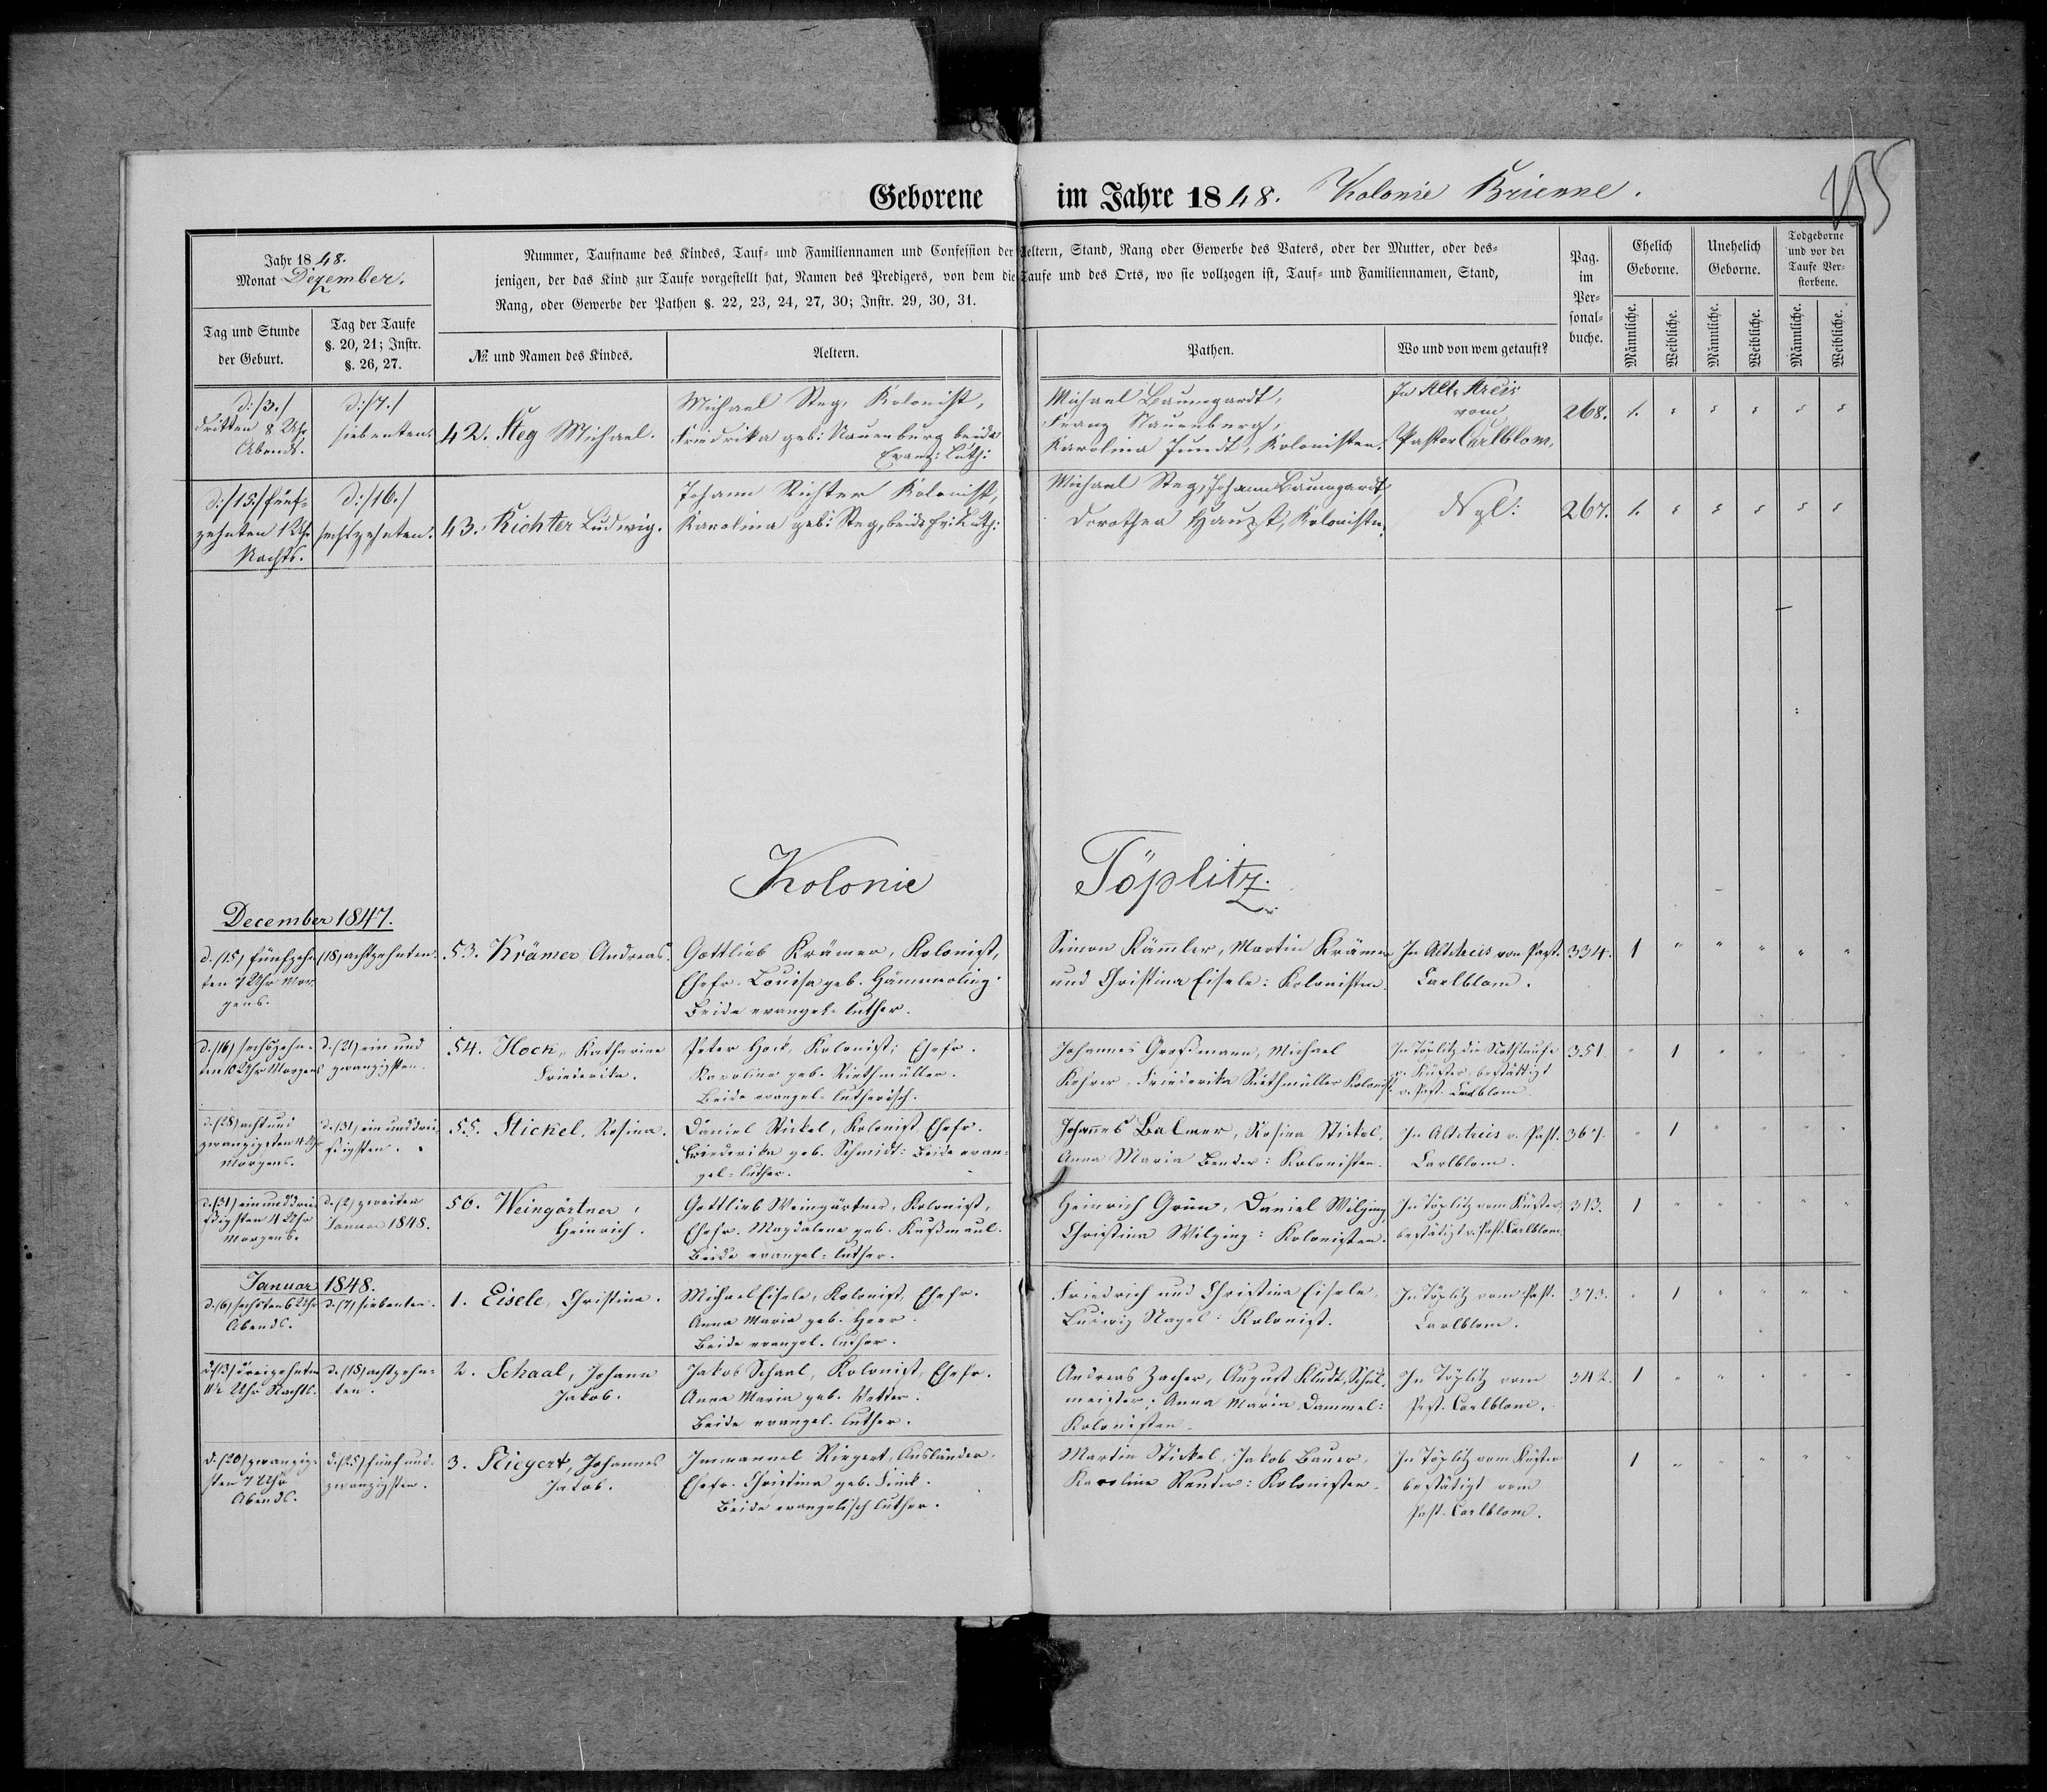 155
Geborene im Jahre 1848. Kolonie Brienne.
Jahr 1848.
Monat Dezember.
Nummer, Taufname des Kindes, Tauf- und Familiennamen und Confession der Aeltern, Stand, Rang oder Gewerbe des Vaters, oder der Mutter, oder des-
jenigen, der das Kind zur Taufe vorgestellt hat, Namen des Predigers, von dem die Taufe und des Orts, wo sie vollzogen ist, Tauf- und Familiennamen, Stand,
Rang, oder Gewerbe der Pathen §. 22, 23, 24, 27, 30; Instr. 29, 30, 31.
Pag.
im
Per-
sonal-
buche.
Ehelich
Geborne.
Unehelich
Geborne.
Todgeborne
und vor der
Taufe Ver-
storbene.
Tag und Stunde
der Geburt.
Tag der Taufe
§. 20, 21; Instr.
§. 26, 27.
№ und Namen des Kindes.
Aeltern.
Pathen.
Wo und von wem getauft?
Männliche.
Weibliche.
Männliche.
Weibliche.
Männliche.
Weibliche.
d: /3./
dritten 8 Uhr
Abends.
d: /7./
siebenten.
42. Steg Michael.
Michael Steg, Kolonist,
Friedrika geb: Nauenburg beide
Evang: Luth:
Michael Baumgardt,
Franz Nauenberg,
Karolina Jundt, Kolonisten.
In Alt-Arcis
vom
Pastor Carlblom.
268. 1.
d: /15/ fünf-
zehnten 1 Uhr
Nachts.
d: /16./
sechszehnten.
43. Richter Ludwig.
Johann Richter Kolonist,
Karolina geb: Steg, beide Ev: Luth:
Michael Steg, Johann Baumgardt
Dorothea Haupt, Kolonisten.
Dsgl:
267. 1.
Kolonie Töplitz.
December 1847.
d. (15) fünfzehn-
ten 7 Uhr Mor-
gens.
(18) achtzehnten.
53. Krämer Andreas.
Gottlieb Krämer, Kolonist,
Ehefr. Louisa geb. Hämmerling.
Beide evangel. luther.
Simon Kämler, Martin Krämer
und Christina Eisele: Kolonisten.
In Alt Arcis von Past.
Carlblom.
334. 1
d. (16) sechszehn-
ten 10 Uhr Morgens
d. (21) ein und
zwanzigsten.
54. Hock, Katharine
Friederika.
Peter Hock, Kolonist; Ehefr.
Karoline geb. Riethmüller.
Beide evangel. lutherisch.
Johannes Großmann, Michael
Kehrer. Friederika Riethmüller Kolonist.
In Töplitz die Nothtaufe
v. Küster, bestättigt
v. Past. Carlblom.
351. 1
d. (28) acht und
zwanzigsten 4 Uhr
Morgens.
d. (31) ein und drei-
ßigsten.
55. Stickel, Rosina.
Daniel Stickel, Kolonist Ehefr.
Friederika geb. Schmidt: Beide evan-
gel-luther.
Johañes Balmer, Rosina Stickel,
Anna Maria Bender: Kolonisten.
In Alt Arcis v. Past.
Carlblom.
367. 1
d. (31) ein und drei-
ßigsten 4 Uhr
Morgens.
d. (2) zweiten
Januar 1848.
56. Weingärtner,
Heinrich.
Gottlieb Weingärtner, Kolonist,
Ehefr. Magdalena geb. Kußmaul.
Beide evangel-luther.
Heinrich Grün, Daniel Wilging,
Christina Wilging: Kolonisten.
In Töplitz vom Küster,
bestätigt v. Past. Carlblom.
313. 1
Januar 1848.
d. (6) sechsten 6 Uhr
Abends.
d. (7) siebenten.
1. Eisele, Christina.
Michael Eisele, Kolonist, Ehefr.
Anna Maria geb. Heer.
Beide evangel. luther.
Friedrich und Christina Eisele,
Ludwig Nagel: Kolonist.
In Töplitz vom Past.
Carlblom.
373. 1
d. (13) dreizehnten
Uhr Nachts.
d. (18) achtzehn-
ten.
2. Schaal, Johann
Jakob.
Jakob Schaal, Kolonist, Ehefr.
Anna Maria geb. Vetter.
Beide evangel. luther.
Andreas Zacher, August Kludt, Schul-
meister. Anna Maria Dammel:
Kolonisten.
In Töplitz vom
Past. Carlblom.
342. 1
d. (20) zwanzig-
sten 7 Uhr
Abends.
d. (25) fünf und
zwanzigsten.
3. Riegert, Johannes
Jakob.
Immanuel Riegert, Ausländer.
Ehefr. Christina geb. Fink.
Beide evangelisch luther.
Martin Stickel, Jakob Bauer,
Karoline Reuter: Kolonisten.
In Töplitz vom Küster
bestätigt vom
Past. Carlblom.
1